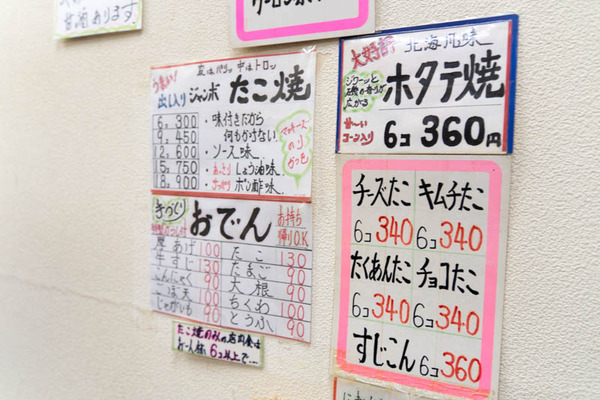 甘酒あります
皮はパリッ 中はトロッ
うまい!
出し入り ジャンボ たこ焼
6コ 300
9コ 450
12コ 600
15コ 750
18コ 900
・味付きだから
何もかけない
・ソース味
・あっさり しょう油味
・さっぱり ポン酢味
マヨネーズ
のり
かつお
手づくり おでん
お持ち
帰りO.K
厚あげ 100
牛すじ 130
こんにゃく 90
ごぼ天 100
じゃがいも 90
たこ 130
たまご 90
大根 90
ちくわ 100
とうふ 90
たこ焼のみの店内食は
お一人様 6コ以上で…
大好評 北海風味
ジワーッと
広がる
ホタテ焼
コーン入り
6コ 360円
チーズたこ
6コ 340
キムチたこ
6コ 340
たくあんたこ
6コ 340
チョコたこ
6コ 340
すじこん
6コ 360